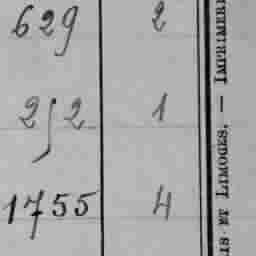 629 2
252 1
1755 4
IS ET LIMOGES. — IMPRIMERI